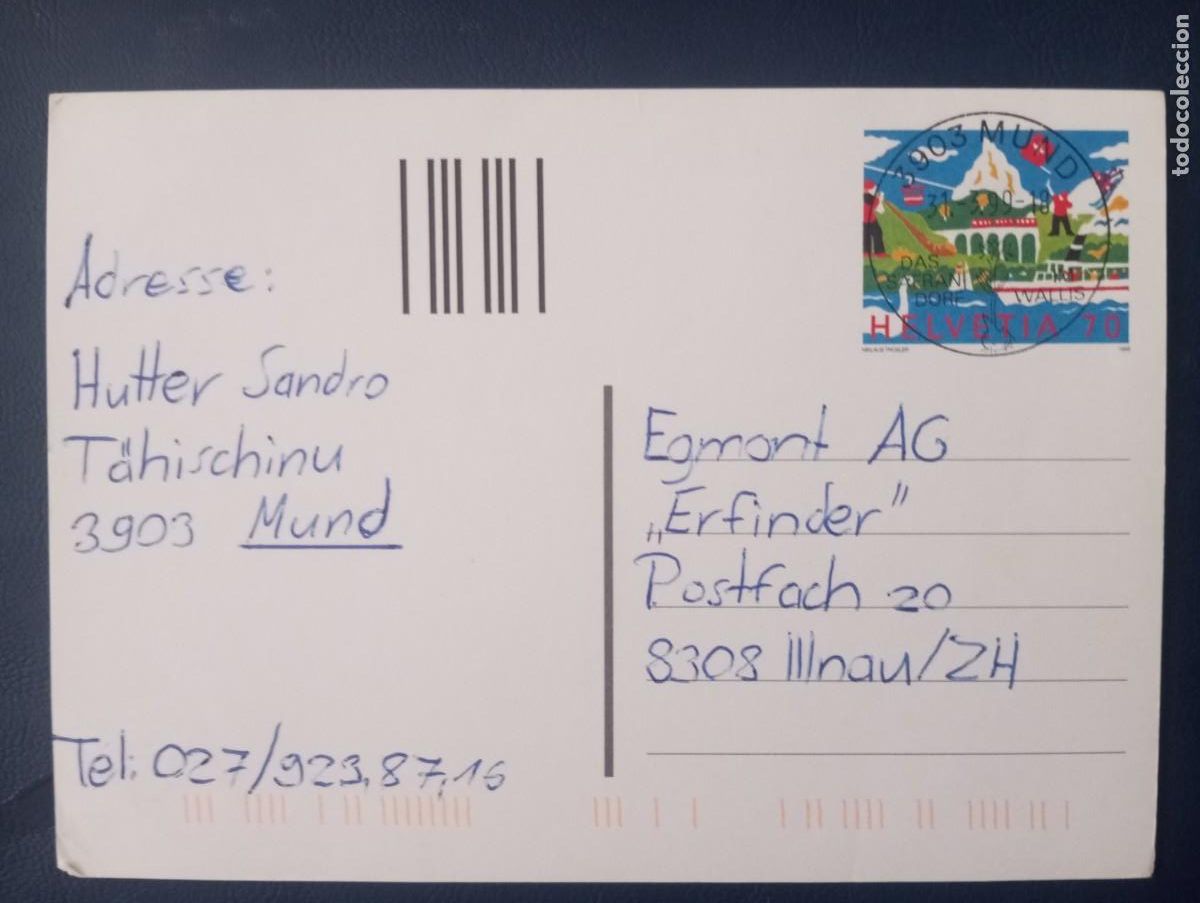 Adresse:
Hutter Sandro
Tähischinu
3903 Mund
Tel: 027/923,87,16
3903 MUND
31.-3.99-18
DAS
SAFRAN
DORF
IM
WALLIS
HELVETIA 70
NIKLAUS TROXLER
Egmont AG
„Erfinder"
Postfach 20
8308 Illnau/ZH
todocoleccion